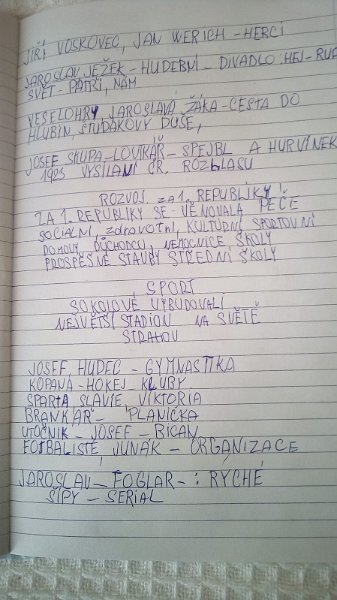 JIŘÍ VOSKOVEC, JAN WERICH - HERCI
JAROSLAV JEŽEK - HUDEBNÍ - DIVADLO: HEJ - RUP
SVĚT - PATŘÍ, NÁM
VESELOHRY JAROSLAVA ŽÁKA - CESTA DO
HLUBIN ŠTUDÁKOVY DUŠE,
JOSEF SKUPA - LOUTKÁŘ - SPEJBL A HURVÍNEK
1923 VYSÍLÁNÍ ČR. ROZHLASU
ROZVOJ za 1. REPUBLIKY
ZA 1. REPUBLIKY SE - VĚNOVALA PÉČE
SOCIÁLNÍ, zdravotní, KULTURNÍ SPORTOVNÍ
DOMOVY, DŮCHODCŮ, NEMOCNICE, ŠKOLY
PROSPĚŠNÉ STAVBY STŘEDNÍ ŠKOLY
SPORT
SOKOLOVÉ VYBUDOVALI
NEJVĚTŠÍ STADION NA SVĚTĚ
STRAHOV
JOSEF HUDEC - GYMNASTIKA
KOPANÁ - HOKEJ KLUBY
SPARTA SLAVIE, VIKTORIA
BRANKÁŘ - PLANIČKA
ÚTOČNÍK - JOSEF - BICAN
FOTBALISTÉ, JUNÁK - ORGANIZACE
JAROSLAV - FOGLAR - : RYCHÉ
ŠÍPY - SERIÁL